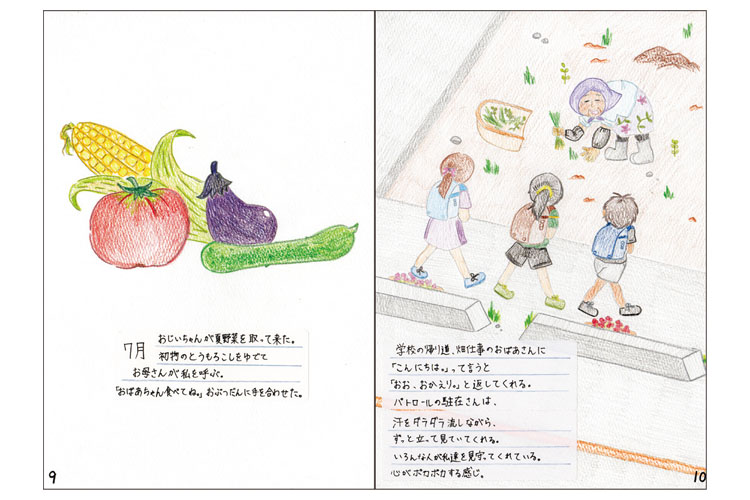 7月
おじいちゃんが夏野菜を取って来た。
初物のとうもろこしをゆでて
お母さんが私を呼ぶ。
「おばあちゃん食べてね。」おぶつだんに手を合わせた。
9
学校の帰り道、畑仕事のおばあさんに
「こんにちは。」って言うと
「おお、おかえり。」と返してくれる。
パトロールの駐在さんは、
汗をダラダラ流しながら、
ずっと立って見ていてくれる。
いろんな人が私達を見守ってくれている。
心がポカポカする感じ。
10